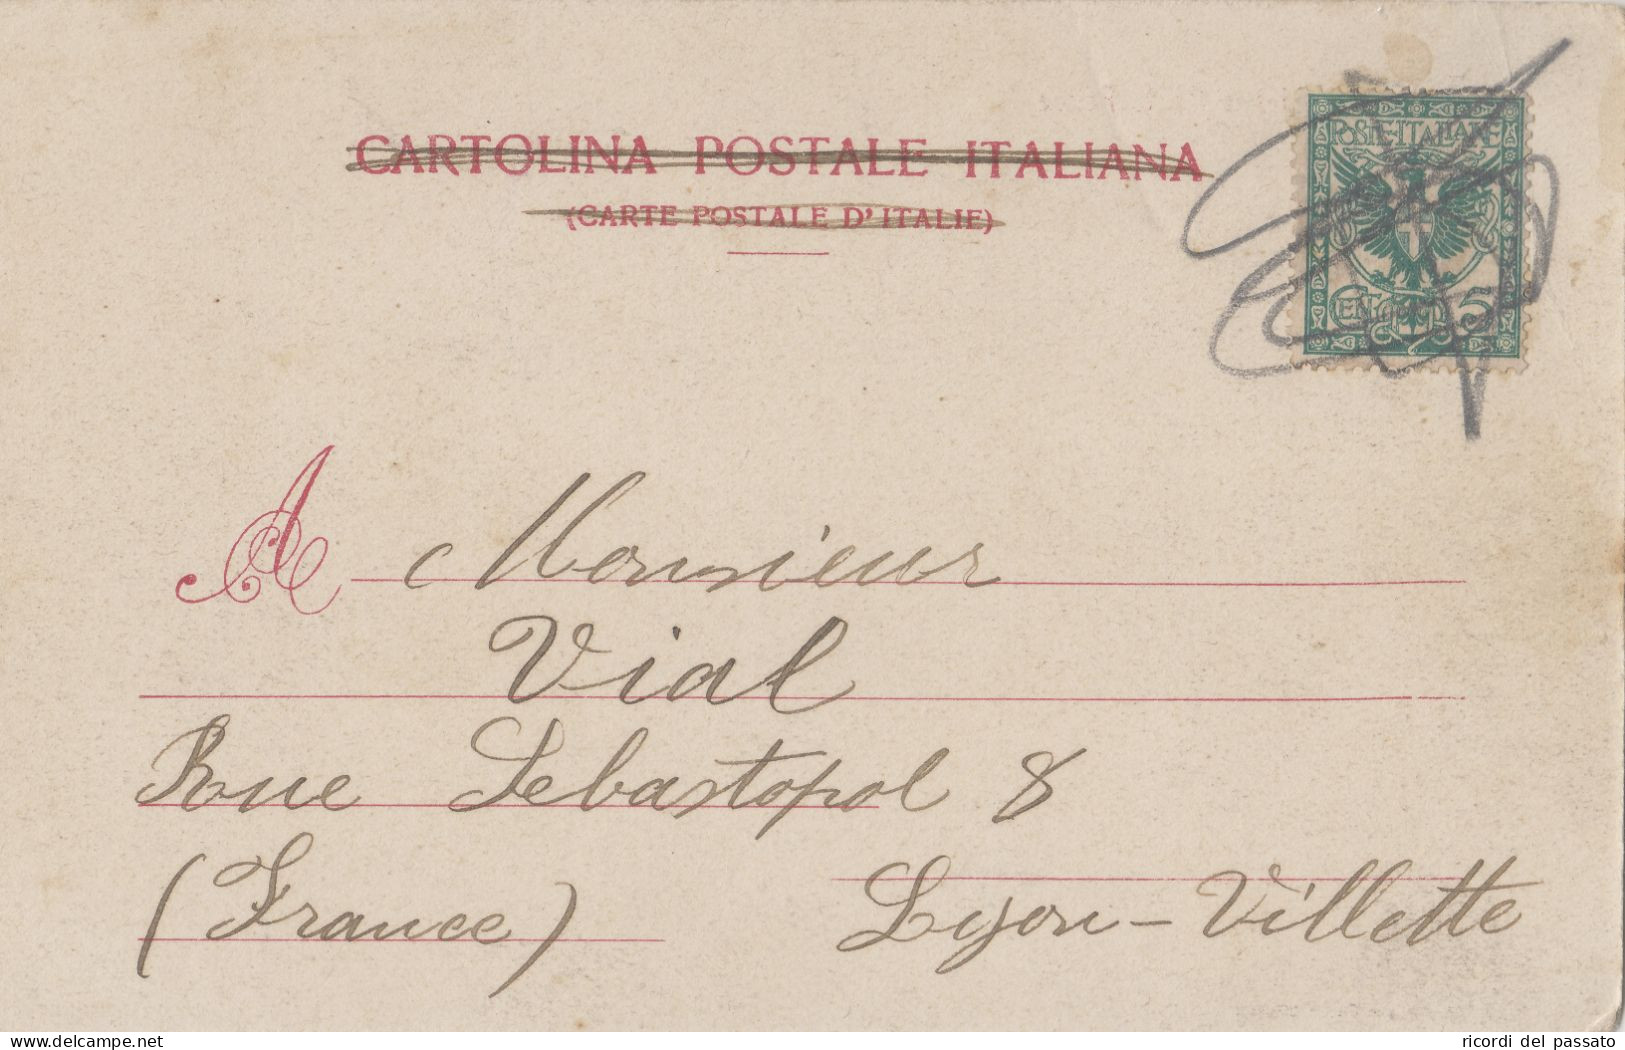 CARTOLINA POSTALE ITALIANA
(CARTE POSTALE D'ITALIE)
POSTE·ITALIANE
CENT. 5
A Monsieur
Vial
Rue Sebastopol 8
(France) Lyon-Villette
delcampe.net
ricordi del passato